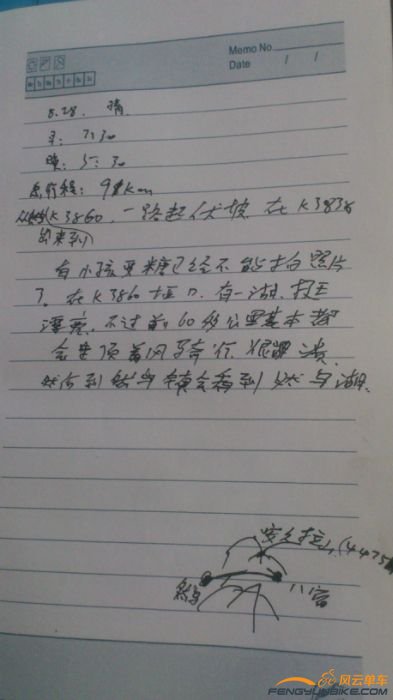 Memo No.
Date / /
5.28. 晴
早: 7:30
晚: 5:30
总行程: 91km
K3860, 一路起伏坡. 在K3838
有小孩要糖已经不能拍照片
了. 在K3860垭口. 有一湖. 挺
漂亮. 不过前60多公里基本都
会是顶着风骑行. 很崩溃.
然后到然乌镇会看到然乌湖.
安久拉山(4475
然乌
八宿
风云单车
FENGYUNBIKE.COM